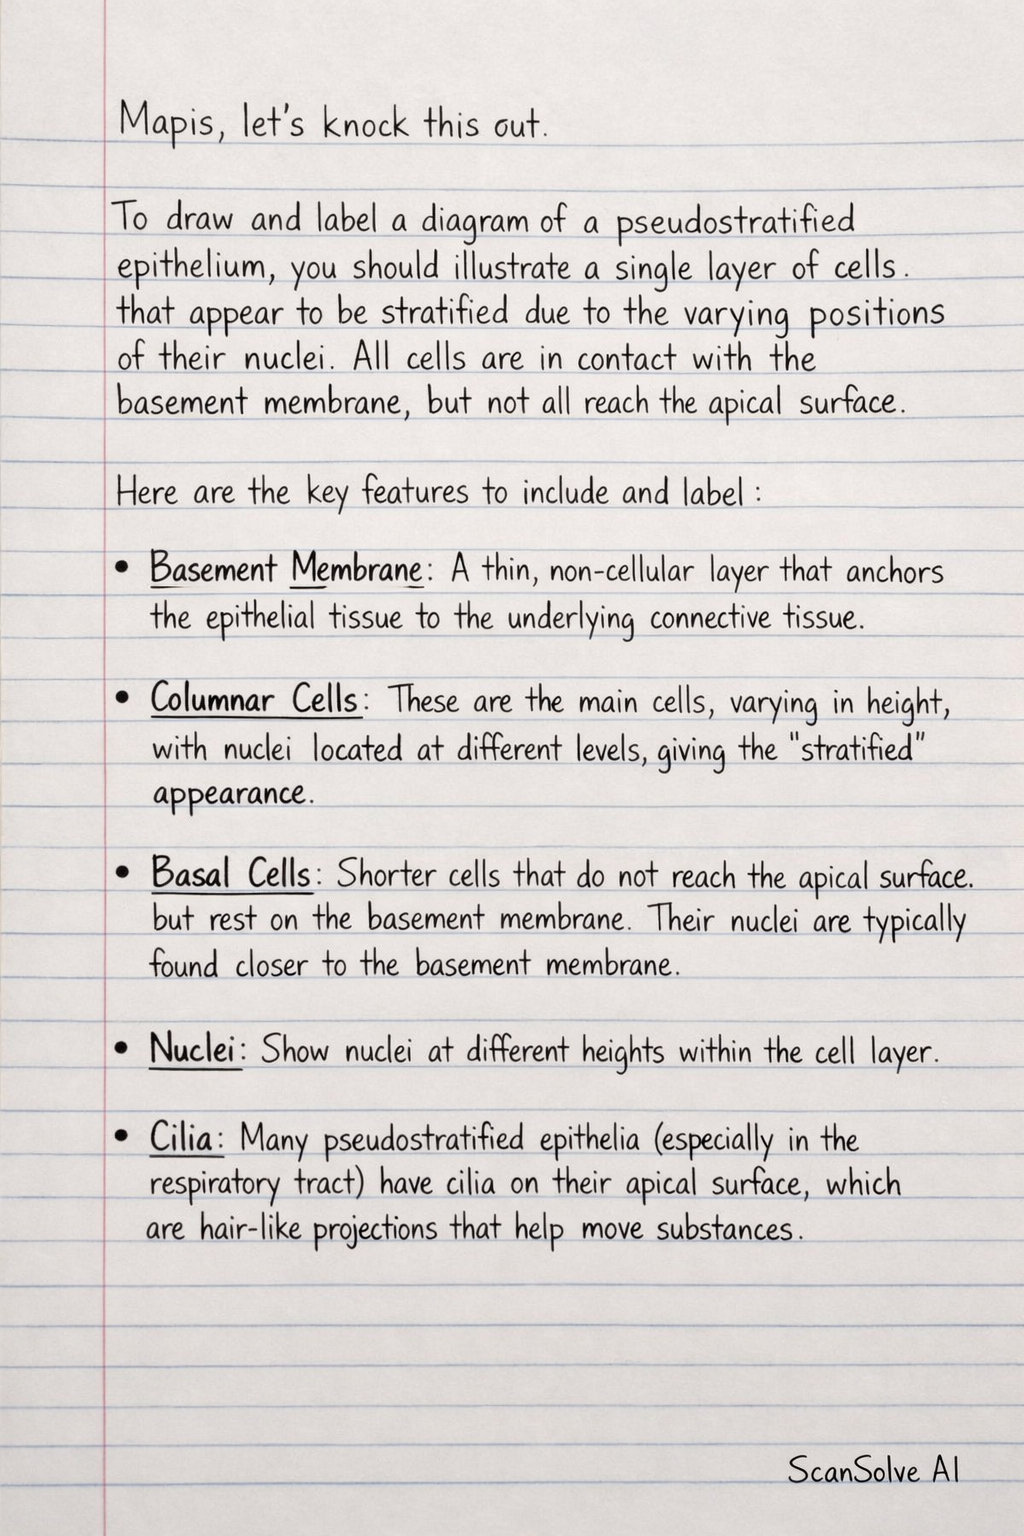 Mapis, let's knock this out.
To draw and label a diagram of a pseudostratified
epithelium, you should illustrate a single layer of cells.
that appear to be stratified due to the varying positions
of their nuclei. All cells are in contact with the
basement membrane, but not all reach the apical surface.
Here are the key features to include and label:
• Basement Membrane: A thin, non-cellular layer that anchors
the epithelial tissue to the underlying connective tissue.
• Columnar Cells: These are the main cells, varying in height,
with nuclei located at different levels, giving the "stratified"
appearance.
• Basal Cells: Shorter cells that do not reach the apical surface.
but rest on the basement membrane. Their nuclei are typically
found closer to the basement membrane.
• Nuclei: Show nuclei at different heights within the cell layer.
• Cilia: Many pseudostratified epithelia (especially in the
respiratory tract) have cilia on their apical surface, which
are hair-like projections that help move substances.
ScanSolve AI